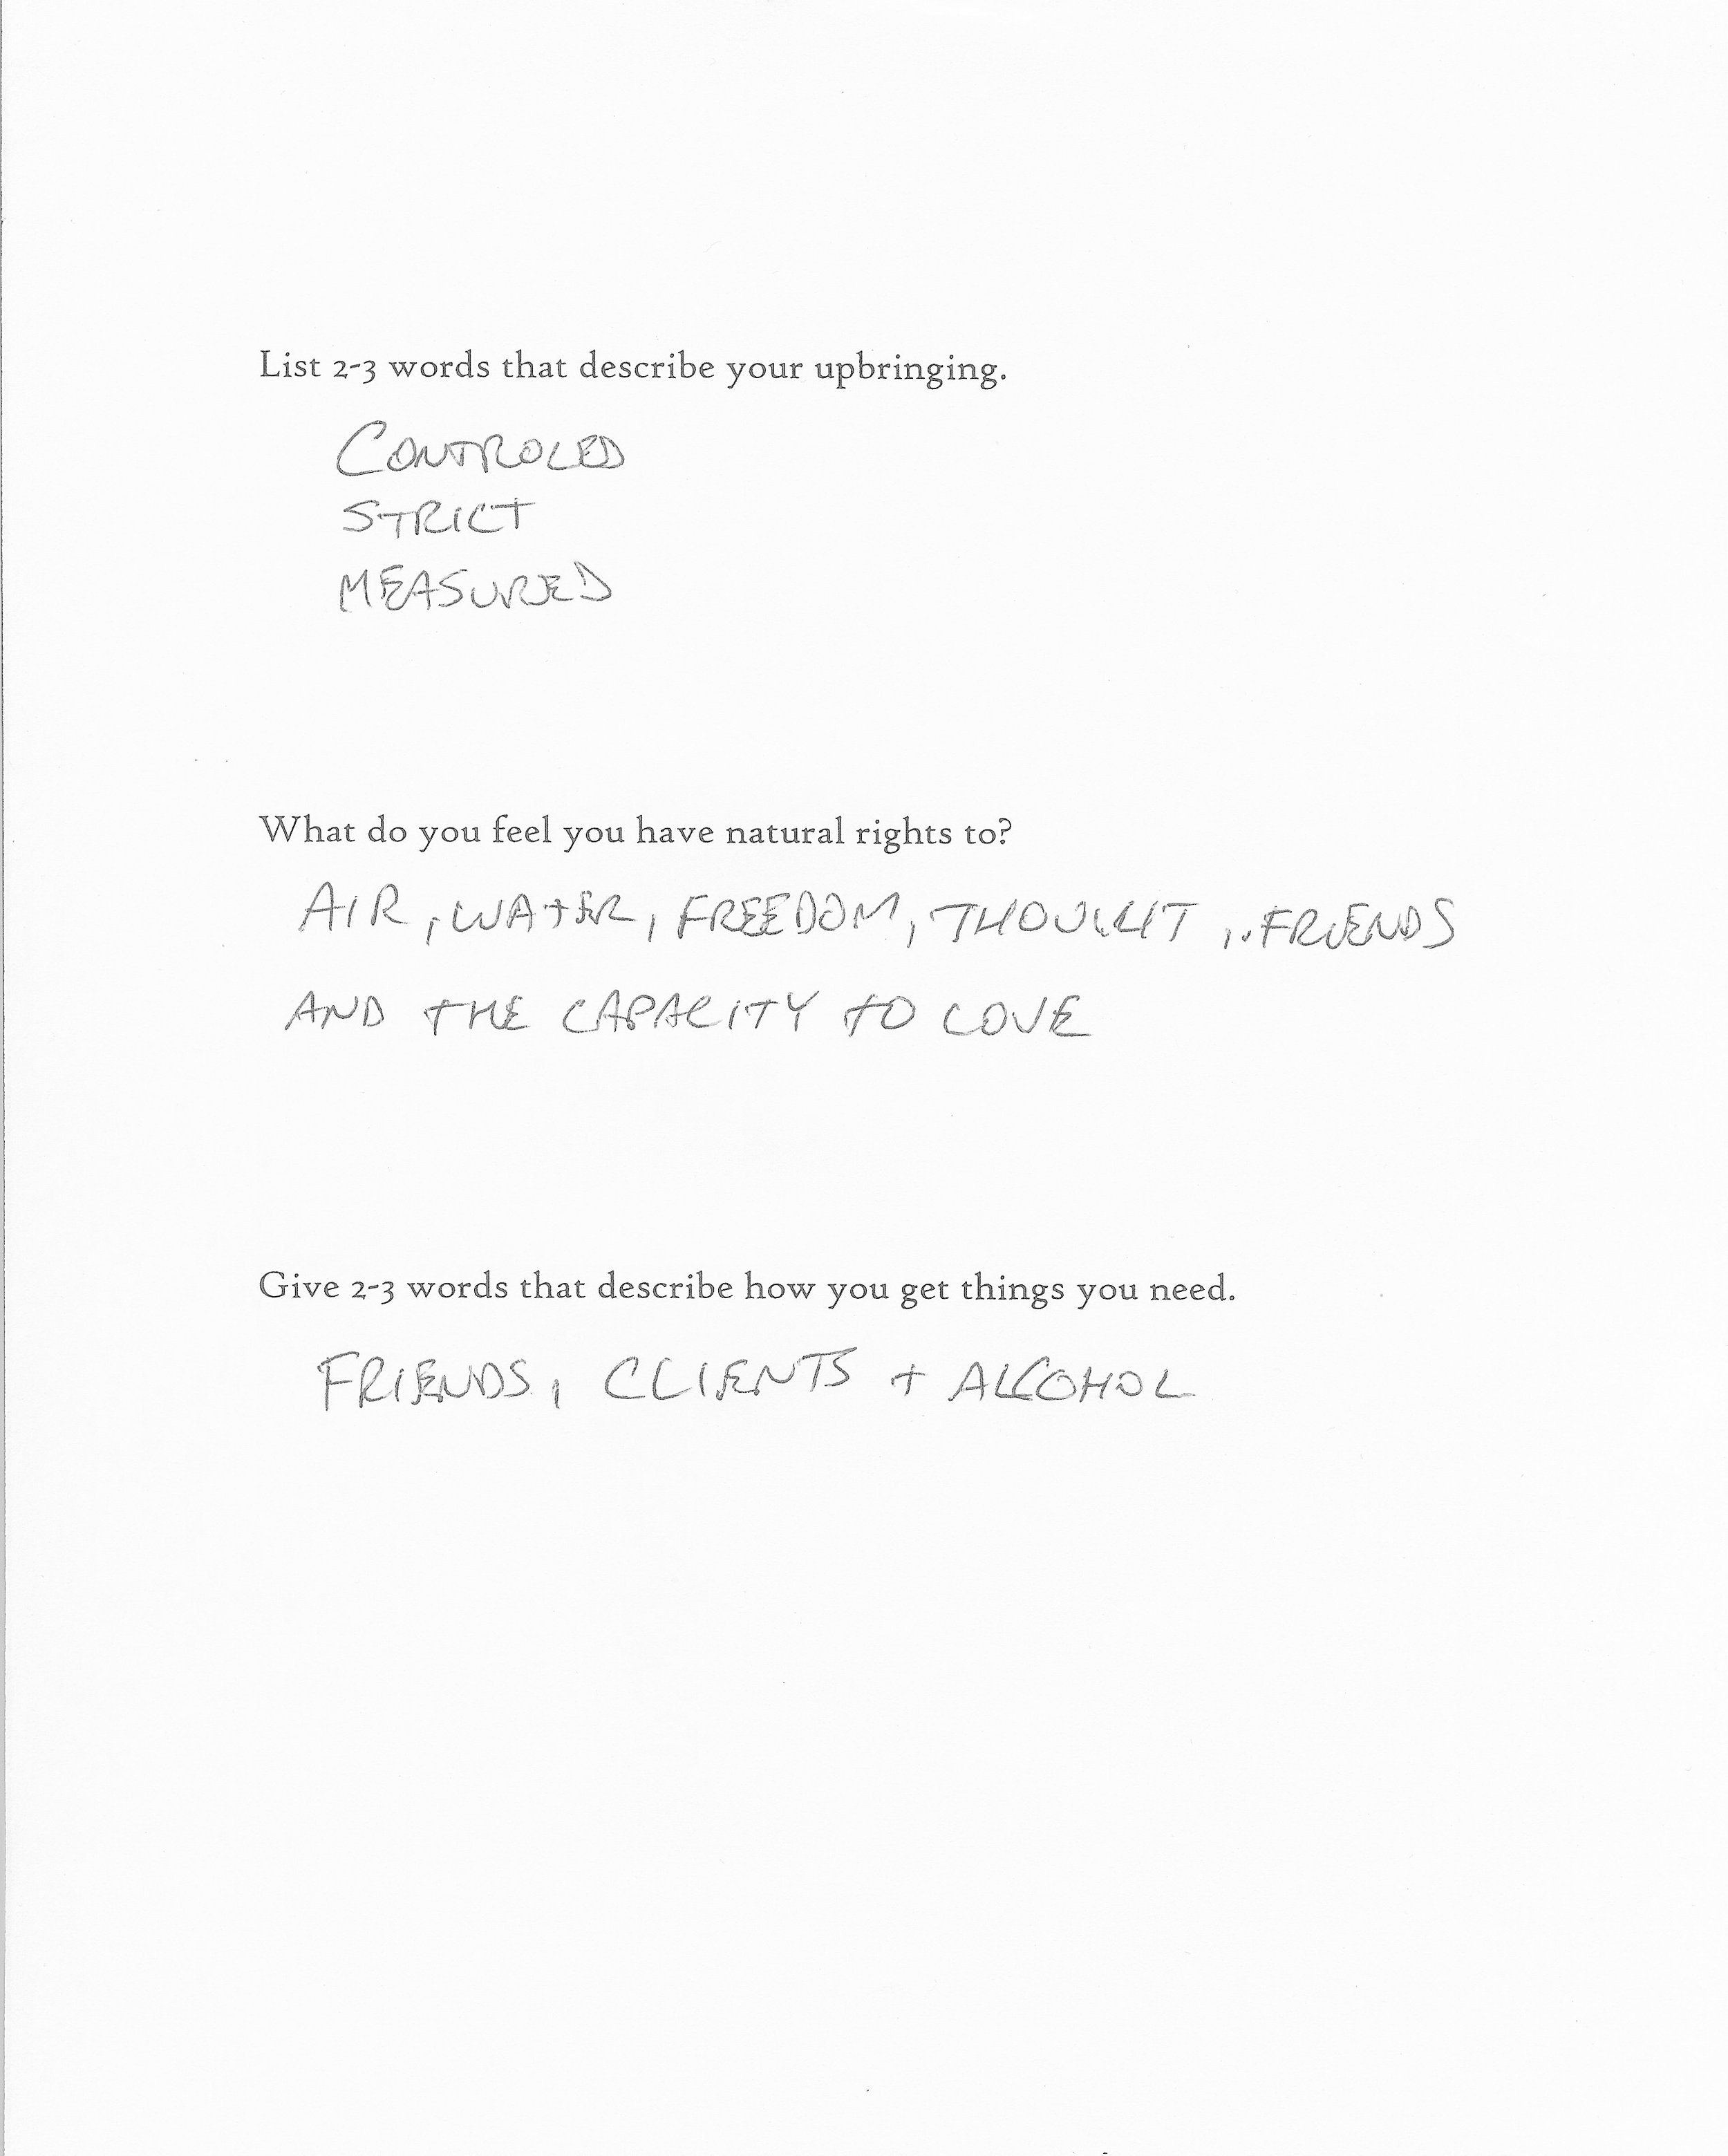 List 2-3 words that describe your upbringing.
CONTROLED
STRICT
MEASURED
What do you feel you have natural rights to?
AIR, WATER, FREEDOM, THOUGHT, .. FRIENDS
AND THE CAPACITY TO LOVE
Give 2-3 words that describe how you get things you need.
FRIENDS, CLIENTS + ALCOHOL